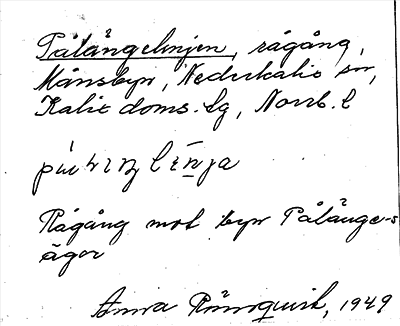 Pålångelinjen, rågång,
Månsbyn, Nederkalix sn,
Kalix doms.lg, Norrb. l
Rågång mot byn Pålänge-s
ägor
Anna Rönnquist, 1949